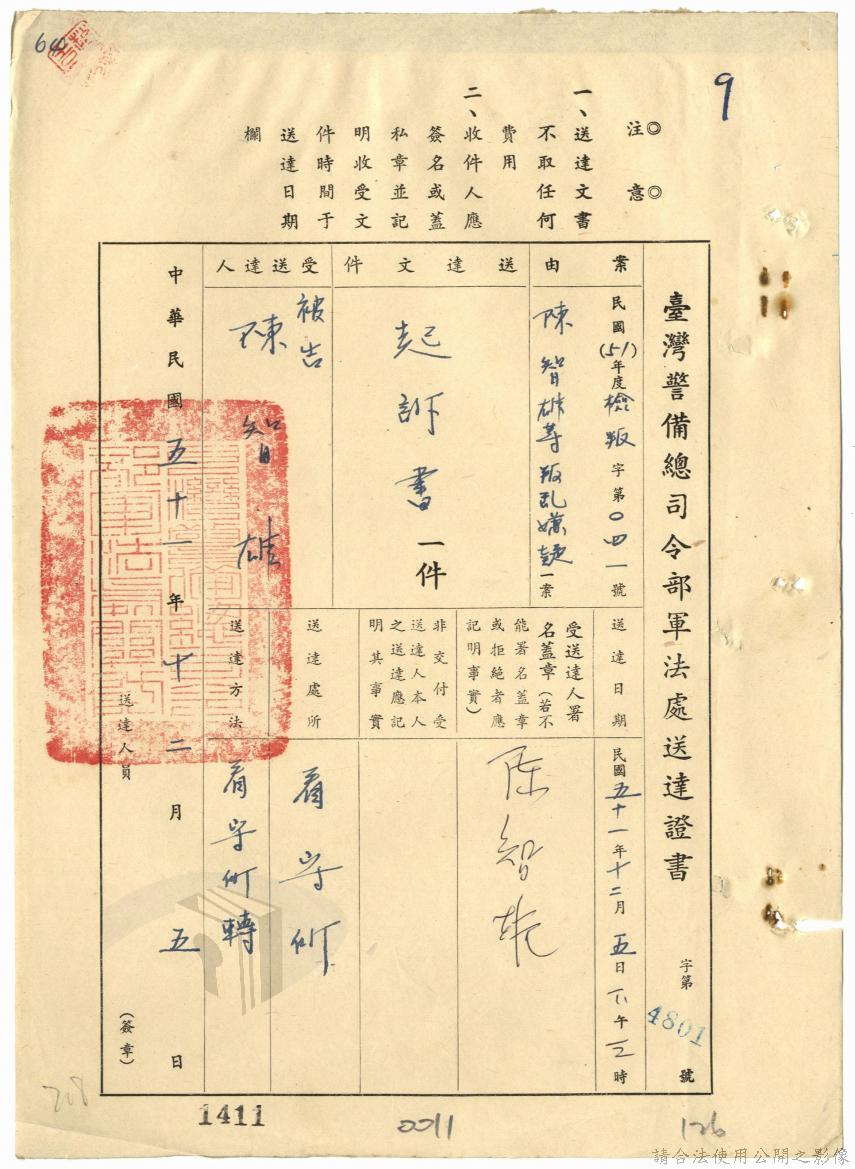 64
9
◎注意◎
一、送達文書
不取任何
費用
二、收件人應
簽名或蓋
私章並記
明收受文
件時間于
送達日期
欄
臺灣警備總司令部軍法處送達證書
字第4801號
案由
民國(51)年度檢叛字第〇四一號
陳智雄等叛乱嫌疑一案
送達文件
起訴書一件
受送達人
被告
陳智雄
送達日期
民國五十一年十二月五日下午三時
受送達人署
名蓋章(若不
能署名蓋章
或拒絕者應
記明事實)
陳智雄
非交付受
送達人本人
之送達應記
明其事實
送達處所
看守所
送達方法
看守所轉
中華民國五十一年十二月五日
送達人員
(簽章)
208
1411
0011
126
請合法使用公開之影像